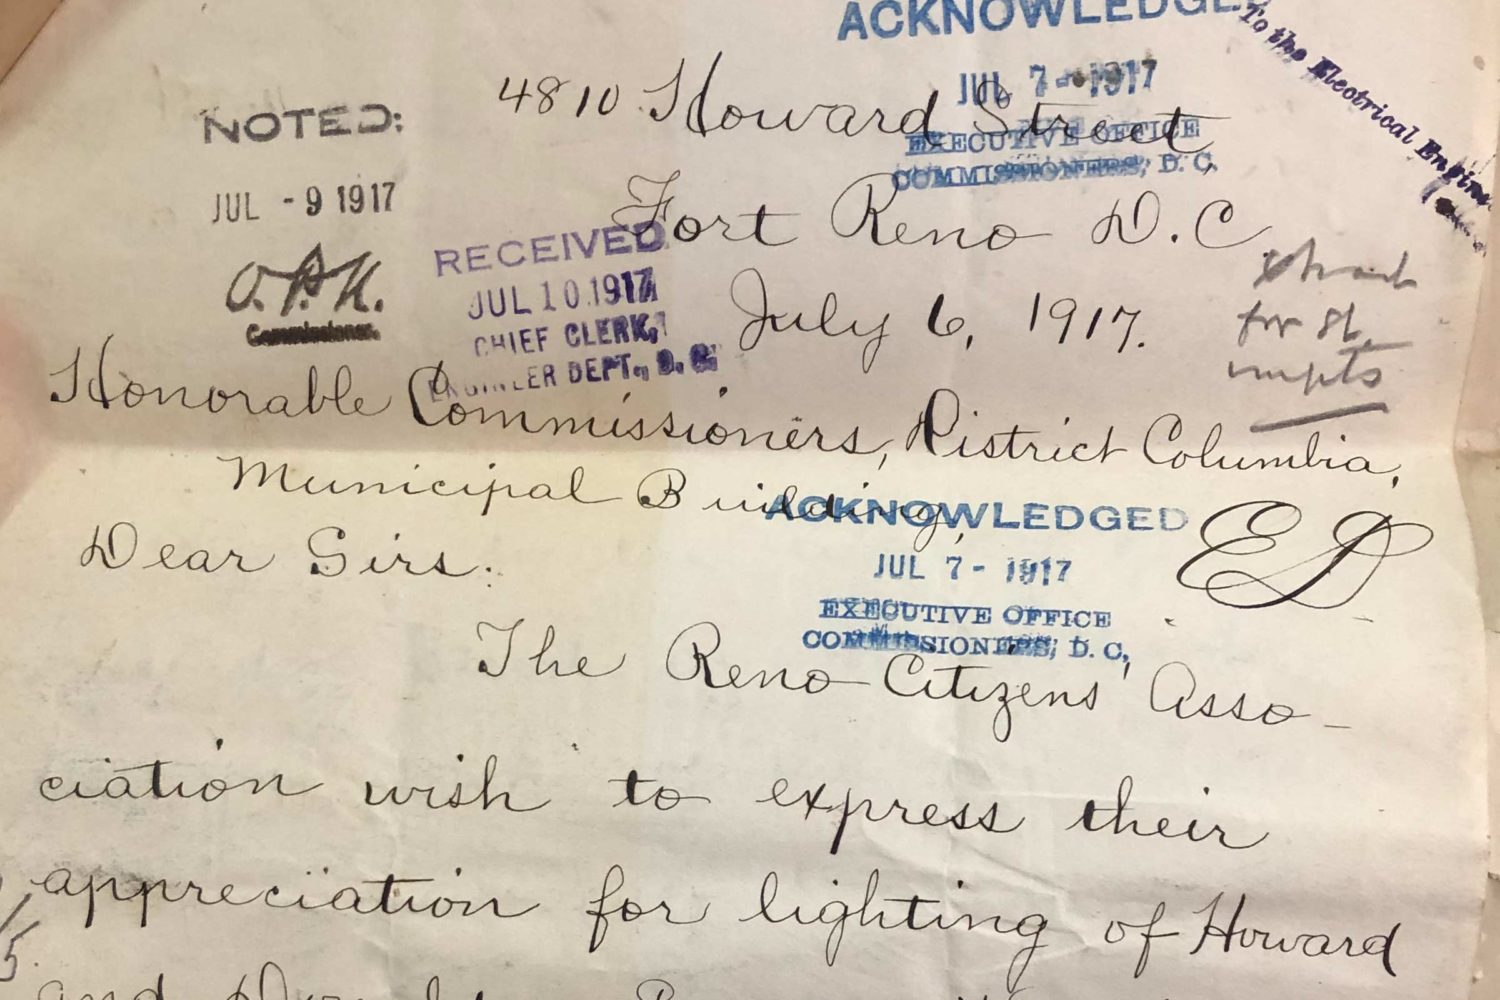 ACKNOWLEDGED
To the Electrical Engineer
4810 Howard Street
JUL 7 - 1917
EXECUTIVE OFFICE
COMMISSIONERS, D. C.
NOTED:
JUL - 9 1917
Commissioner.
Fort Reno D.C
RECEIVED
JUL 10 1917
CHIEF CLERK,
ENGINEER DEPT., D. C.
July 6, 1917.
for st.
Honorable Commissioners, District Columbia,
Municipal Building,
ACKNOWLEDGED
JUL 7 - 1917
EXECUTIVE OFFICE
COMMISSIONERS, D. C,
Dear Sirs:
The Reno Citizens' Asso-
ciation wish to express their
appreciation for lighting of Howard
and